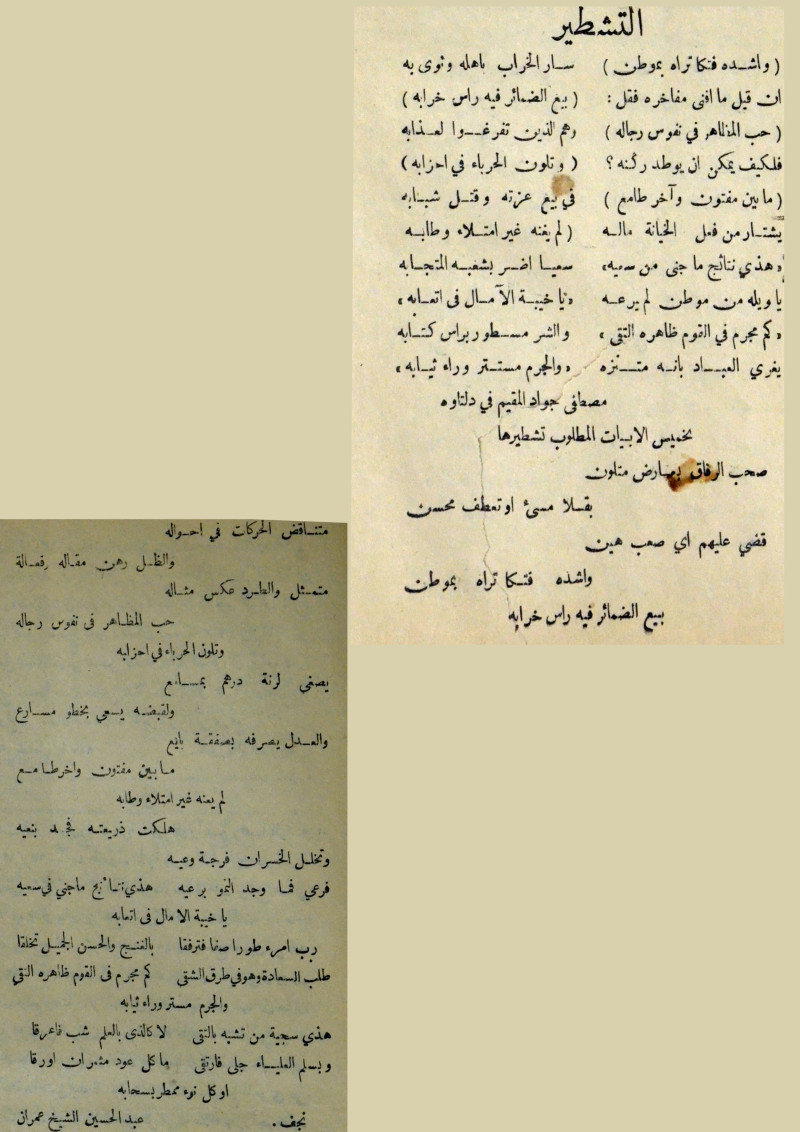 التشطير
( واشده فتكا تراه بموطن ) سار الخراب باهله وثوى به
ان قيل ما افنى مفاخره فقل : ( بيع الضمائر فيه راس خرابه )
( حب المظاهر في نفوس رجاله ) وهم الذين تفرغوا لعذابه
فلكيف يمكن ان يوطد ركنه ؟ ( وتلون الحرباء في احزابه )
( ما بين مفتون وآخر طامع ) في بيع عزته وقتل شبابه
يشتار من فعل الخيانة ماله ( لم يغنه غير امتلاء وطابه
« هذي نتائج ما جنى من سعيه » سعيا اضر بشعبه المتجابه
يا ويله من موطن لم يرعه « يا خيبة الآمال فى اتعابه »
« كم مجرم في القوم ظاهره التقى » والشر مسطور براس كتابه
يغري العباد بانه متنزه « والجرم مستتر وراء ثيابه »
مصطفى جواد المقيم في دلتاوه
تخميس الابيات المطلوب تشطيرها
صحب الرفاق بعارض متلون
بقلا مسئ او تعطف محسن
قضي عليهم اي صعب هين
واشده فتكا تراه بموطن
بيع الضمائر فيه راس خرابه
متناقض الحركات في احواله
والظل رهن مقاله وفعاله
متمثل والطرد عكس مثاله
حب المظاهر فى نفوس رجاله
وتلون الحرباء في احزابه
يصغي لرنة درهم بمسامع
ولقبضه يسعي بخطو مسارع
والعدل يصرفه بصفقة بايع
ما بين مفتون واخر طامع
لم يعنه غير امتلاء وطابه
هلكت ذريعته فجد بنعيه
وتخلل الخسران فرجة وعيه
فرعي فما وجد النمو برعيه هذي نتائج ما جني في سعيه
يا خيبة الامال فى اتعابه
رب امرء طورا صفا فترفقا بالغنج والحسن الجميل تخلقا
طلب السعادة وهو في طرق الشقى كم مجرم فى القوم ظاهره التقي
والجرم مستر وراء ثيابه
هذي سجية من تشبه بالتقى لا كالذى بالعلم شب فاعرقا
وبسلم العلياء جلى فارتقى ما كل عود مثمران اورقا
او كل نوء ممطر بسحابه
نجف . عبد الحسين الشيخ عمران